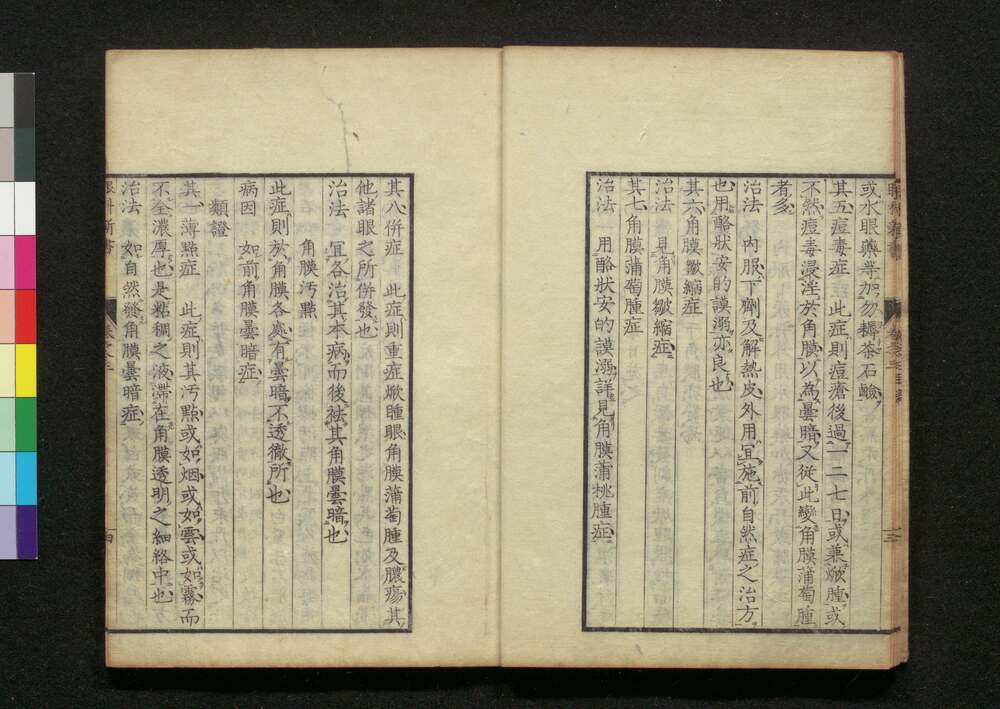 或水眼藥等加勿搦茶石鹼
其五痘毒症　此症則痘瘡後過一二七日或兼焮腫或
不然痘毒浸淫於角膜以為曇暗又從此變角膜蒲萄腫
者多
治法　內服下劑及解熱皮外用宜施前自然症之治方
也用酪狀安的謨溺亦良也
其六角膜皺縮症
治法　見角膜皺縮症
其七角膜蒲萄腫症
治法　用酪狀安的謨溺詳見角膜蒲桃腫症
其八併症　此症則重症焮腫眼角膜蒲萄腫及膿瘍其
他諸眼之所併發也
治法　宜各治其本病而後祛其角膜曇暗也
角膜汚點
此症則於角膜各處有曇暗不透徹所也
病因　如前角膜曇暗症
類證
其一薄點症　此症則其汚點或如烟或如雲或如霧而
不全濃厚也是粘稠之液滯在角膜透明之細絡中也
治法　如自然發角膜曇暗症
眼科新書
卷之三
四